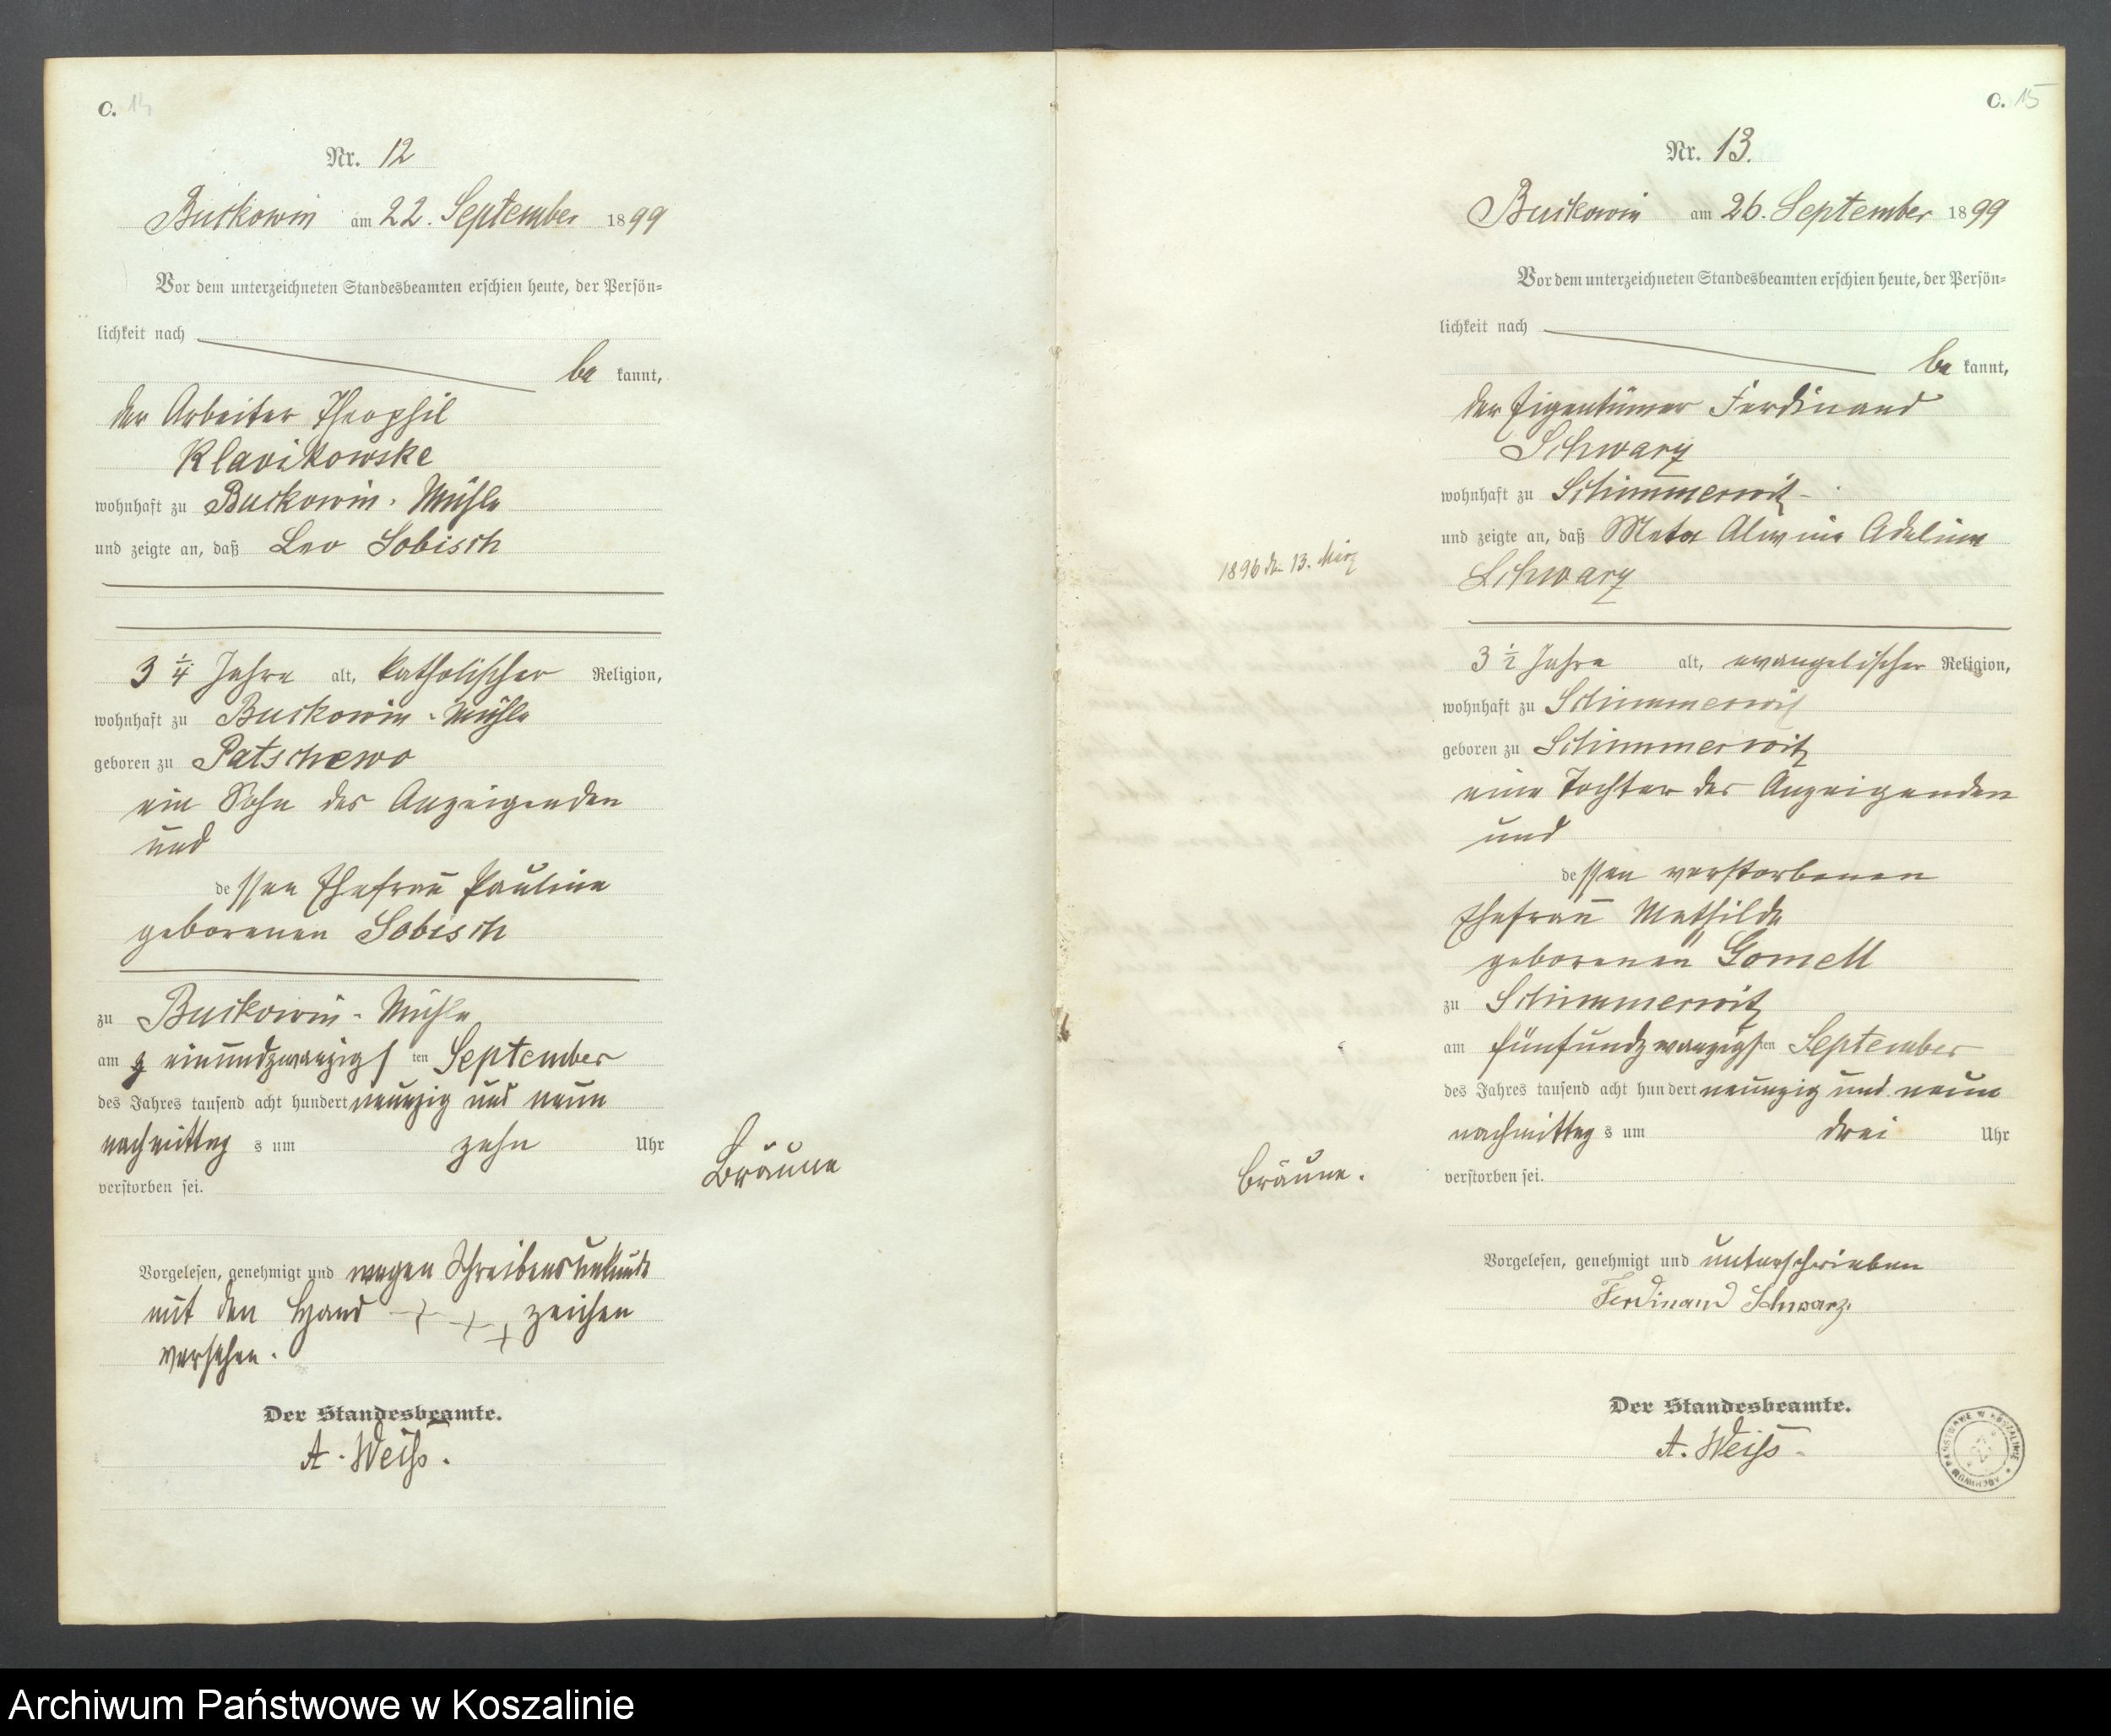 C. 14
Nr. 12
Buckowin am 22. September 1899
Vor dem unterzeichneten Standesbeamten erschien heute, der Persön-
lichkeit nach
be kannt,
der Arbeiter Theophil
Klavikowske
wohnhaft zu Buckowin-Mühle
und zeigte an, daß Leo Sobisch
3 1/4 Jahre alt, katholischer Religion,
wohnhaft zu Buckowin-Mühle
geboren zu Patschewo
ein Sohn des Anzeigenden
und
dessen Ehefrau Pauline
geborenen Sobisch
zu Buckowin-Mühle
am einundzwanzigsten September
des Jahres tausend acht hundert neunzig und neun
nachmittags um zehn Uhr
verstorben sei.
Bräune
Vorgelesen, genehmigt und wegen Schreibensunkunde
mit den Hand +++ zeichen
versehen.
Der Standesbeamte.
A. Weiß.
C. 15
Nr. 13.
Buckowin am 26. September 1899
Vor dem unterzeichneten Standesbeamten erschien heute, der Persön-
lichkeit nach
be kannt,
der Eigentümer Ferdinand
Schwarz
wohnhaft zu Schimmerwitz
und zeigte an, daß Meta Alwine Adeline
Schwarz
1896 den 13. März
3 1/2 Jahre alt, evangelischer Religion,
wohnhaft zu Schimmerwitz
geboren zu Schimmerwitz
eine Tochter des Anzeigenden
und
dessen verstorbenen
Ehefrau Mathilde
geborenen Gomell
zu Schimmerwitz
am fünfundzwanzigsten September
des Jahres tausend acht hundert neunzig und neun
nachmittags um drei Uhr
verstorben sei.
Bräune.
Vorgelesen, genehmigt und unterschrieben
Ferdinand Schwarz.
Der Standesbeamte.
A. Weiß.
ARCHIWUM PAŃSTWOWE W KOSZALINIE
Archiwum Państwowe w Koszalinie